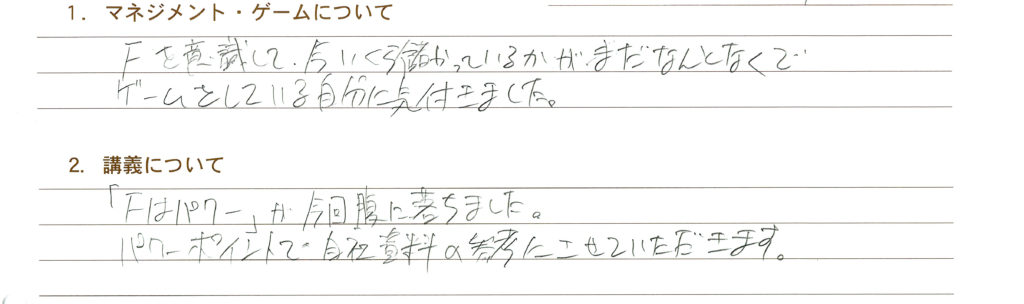 1. マネジメント・ゲームについて
Fを意識して、今いくら儲かっているかがまだなんとなくで
ゲームをしている自分に気付きました。
2. 講義について
「Fはパワー」が今回腹に落ちました。
パワーポイントで自社資料の参考にさせていただきます。